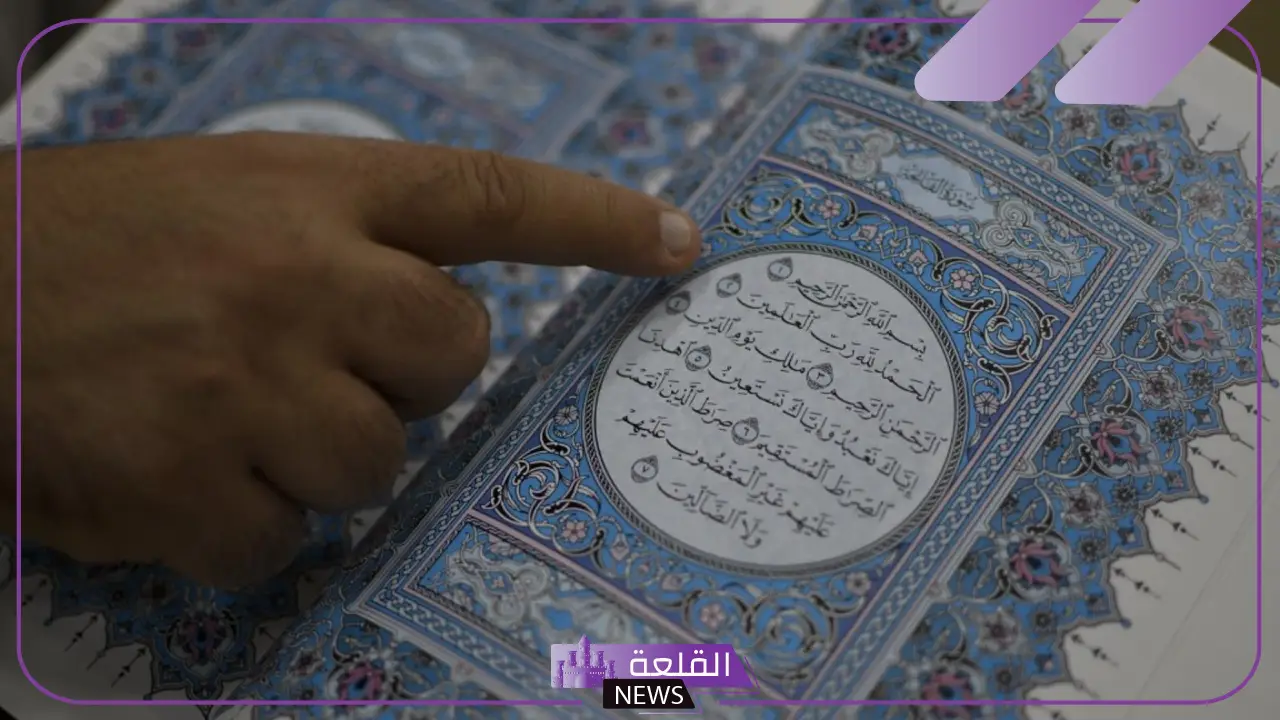 سُورَةُ الفَاتِحَةِ
بِسْمِ ٱللَّهِ ٱلرَّحْمَٰنِ ٱلرَّحِيمِ ١
ٱلْحَمْدُ لِلَّهِ رَبِّ ٱلْعَٰلَمِينَ ٢
ٱلرَّحْمَٰنِ ٱلرَّحِيمِ ٣ مَٰلِكِ يَوْمِ ٱلدِّينِ ٤
إِيَّاكَ نَعْبُدُ وَإِيَّاكَ نَسْتَعِينُ ٥ ٱهْدِنَا
ٱلصِّرَٰطَ ٱلْمُسْتَقِيمَ ٦ صِرَٰطَ ٱلَّذِينَ أَنْعَمْتَ
عَلَيْهِمْ غَيْرِ ٱلْمَغْضُوبِ عَلَيْهِمْ
وَلَا ٱلضَّآلِّينَ ٧
القلعة
NEWS